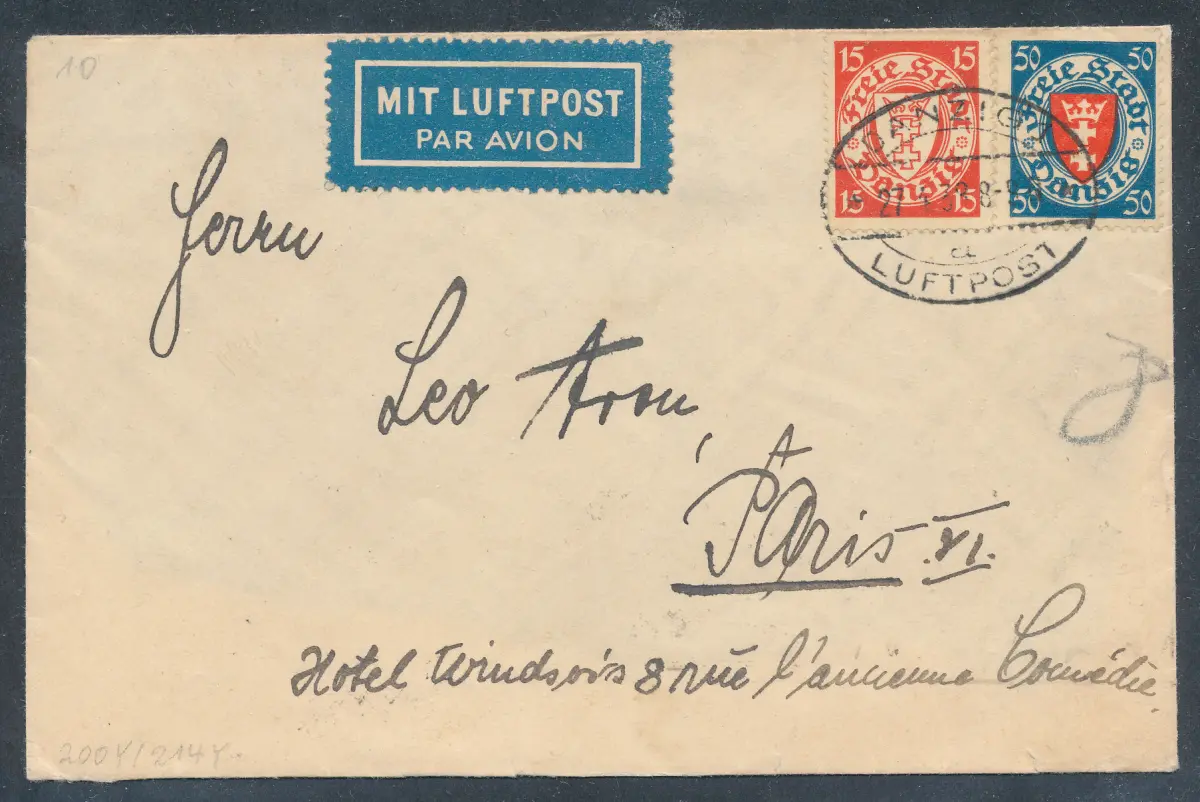 10
MIT LUFTPOST
PAR AVION
15 15
Freie Stadt
Danzig
15 15
50 50
Freie Stadt
Danzig
50 50
DANZIG
27 38 8-
a
LUFTPOST
Herrn
Leo Aron,
Paris VI.
Hotel Windsors 8 rue l'ancienne Comédie
200Y/214Y.